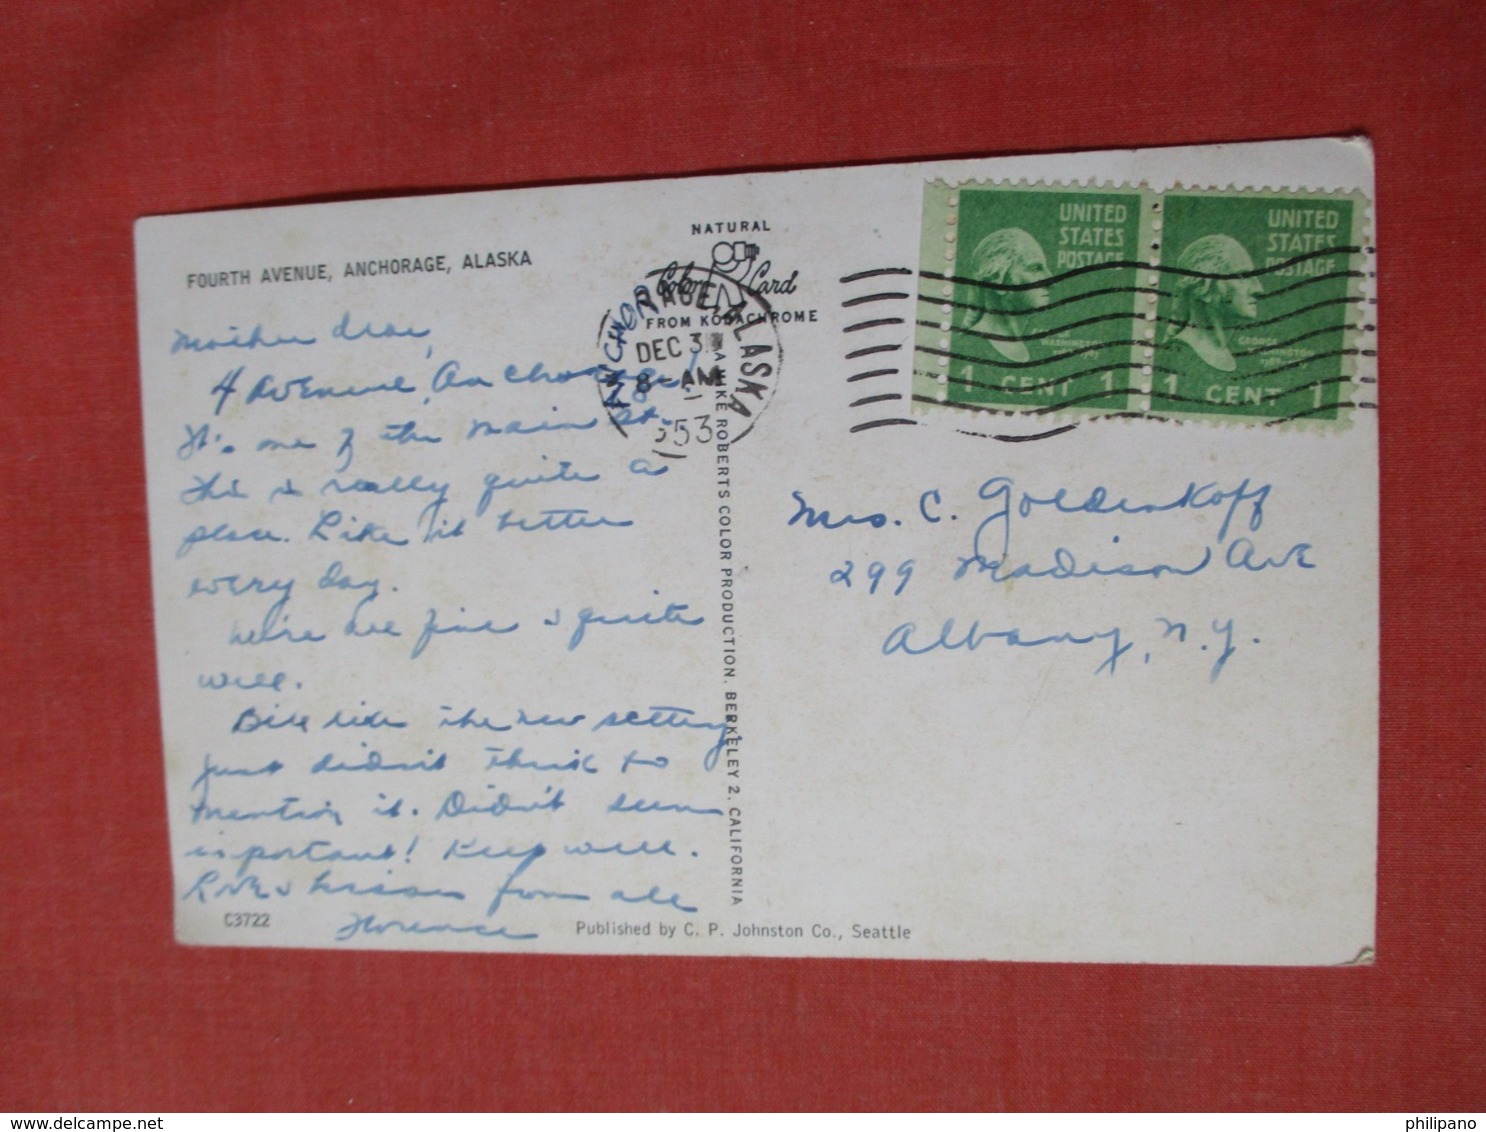 FOURTH AVENUE, ANCHORAGE, ALASKA
Mother dear,
4 Avenue, Anchorage!
It's one of the main sts.
This is really quite a
place. Like it better
every day.
We're all fine & quite
well.
Bill likes the new setting.
Just didn't think to
mention it. Didn't seem
important! Keep well.
Love & kisses from all
Florence
C3722
NATURAL
Color Card
FROM KODACHROME
ANCHORAGE, ALASKA
DEC 31
8 - AM
1953
MIKE ROBERTS COLOR PRODUCTION, BERKELEY 2, CALIFORNIA
Published by C. P. Johnston Co., Seattle
UNITED
STATES
POSTAGE
WASHINGTON
1 CENT 1
UNITED
STATES
POSTAGE
GEORGE
WASHINGTON
1 CENT 1
Mrs. C. Goldenkoff
299 Madison Ave
Albany, N.Y.
delcampe.net
philipano